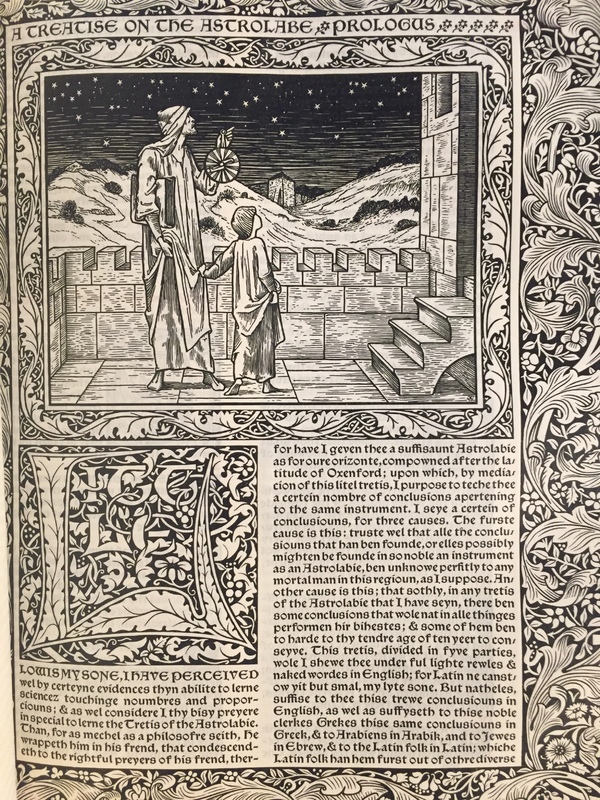 A TREATISE ON THE ASTROLABE, PROLOGUS
LITEL
LOWIS MY SONE, I HAVE PERCEIVED
wel by certeyne evidences thyn abilite to lerne
sciencez touchinge noumbres and propor-
ciouns; & as wel considere I thy bisy preyere
in special to lerne the Tretis of the Astrolabie.
Than, for as mechel as a philosofre seith, he
wrappeth him in his frend, that condescend-
eth to the rightful preyers of his frend, ther-
for have I geven thee a suffisaunt Astrolabie
as for oure orizonte, compowned after the la-
titude of Oxenford; upon which, by media-
cion of this litel tretis, I purpose to teche thee
a certein nombre of conclusions apertening
to the same instrument. I seye a certein of
conclusiouns, for three causes. The furste
cause is this: truste wel that alle the conclu-
siouns that han ben founde, or elles possibly
mighten be founde in so noble an instrument
as an Astrolabie, ben unknowe perfitly to any
mortal man in this regioun, as I suppose. An-
other cause is this; that sothly, in any tretis
of the Astrolabie that I have seyn, there ben
some conclusions that wole nat in alle thinges
performen hir bihestes; & some of hem ben
to harde to thy tendre age of ten yeer to con-
seyve. This tretis, divided in fyve parties,
wole I shewe thee under ful lighte rewles &
naked wordes in English; for Latin ne canst-
ow yit but smal, my lyte sone. But natheles,
suffise to thee thise trewe conclusions in
English, as wel as suffyseth to thise noble
clerkes Grekes thise same conclusions in
Greek, & to Arabiens in Arabik, and to Jewes
in Ebrew, & to the Latin folk in Latin; whiche
Latin folk han hem furst out of othre diverse